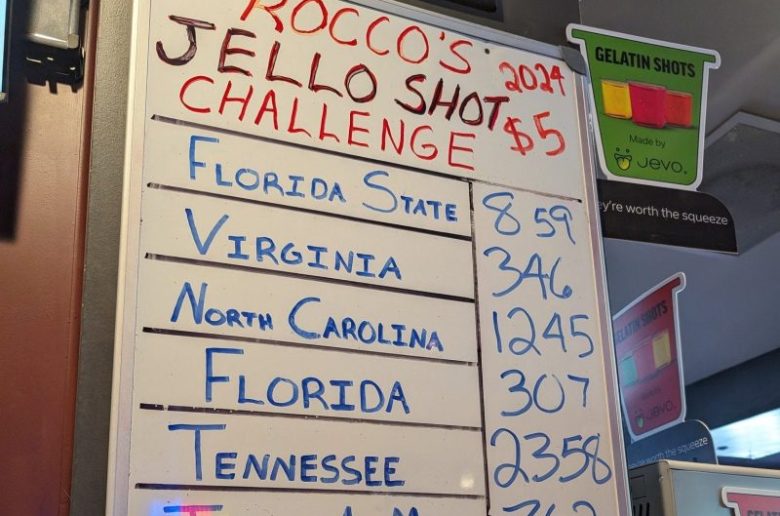 ROCCO'S 2024
JELLO SHOT
CHALLENGE $5
FLORIDA STATE 859
VIRGINIA 346
NORTH CAROLINA 1245
FLORIDA 307
TENNESSEE 2358
GELATIN SHOTS
Made by
Jevo
ey're worth the squeeze
GELATIN SHOTS
Made by
Jevo
worth the squeeze
GELATIN SHOTS